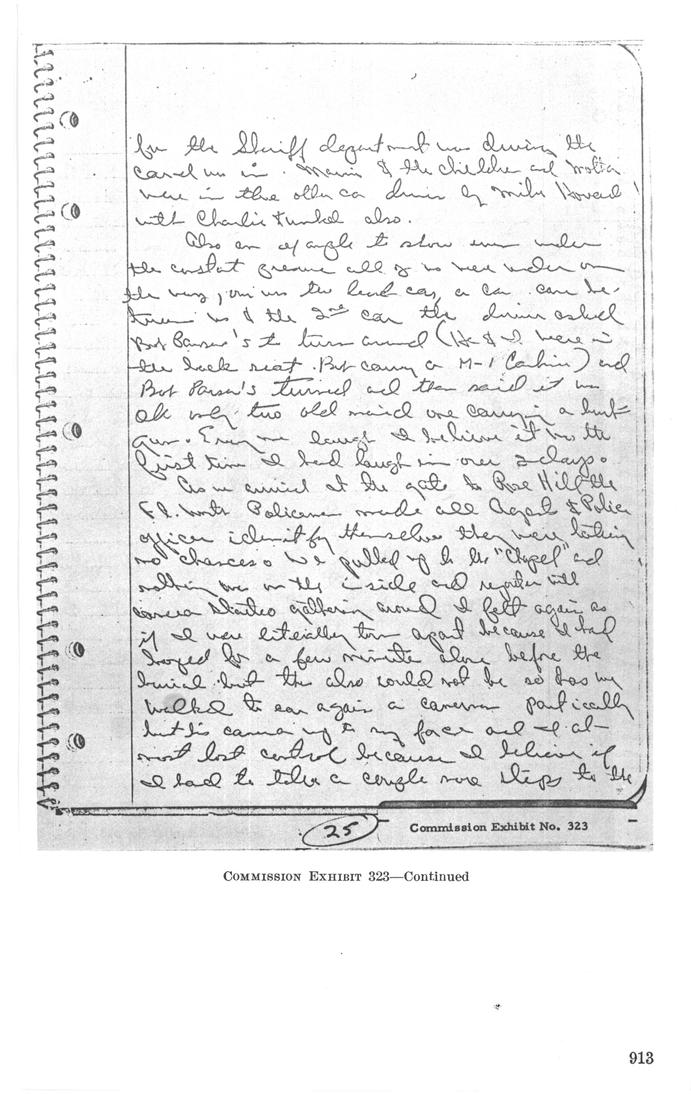 for the Sheriff department was driving the
car I was in. Marin & the children and Mother
were in the other car driven by Mike Howard
with Charlie Kunkel also.
Also an example to show even under
the constant pressure all of us were under on
the way, our was the lead car, a car came be-
tween us & the 2nd car the driver asked
Bob Parson's to turn around (He & I were in
the back seat. Bob carry a M-1 Carbine) and
Bob Parson's turned and then said it was
ok only two old maid one carrying a burp
gun. Everyone laugh I believe it was the
first time I had laugh in over 2 days.
As we arrived at the gate to Rose Hill the
Ft. Worth Policeman made all Agents & Police
officer identify themselve they were taking
no chances. We pulled up to the "Chapel" and
nothing was on the inside and reporter with
camera started gathering around I felt again as
if I were literially torn apart because I had
hoped for a few minute alone before the
burial but this also could not be so has we
walked to car again a cameraman
his camera up to my face and I al-
most lost control because I believe if
I had to take a couple more steps to the
25
Commission Exhibit No. 323
COMMISSION EXHIBIT 323—Continued
913